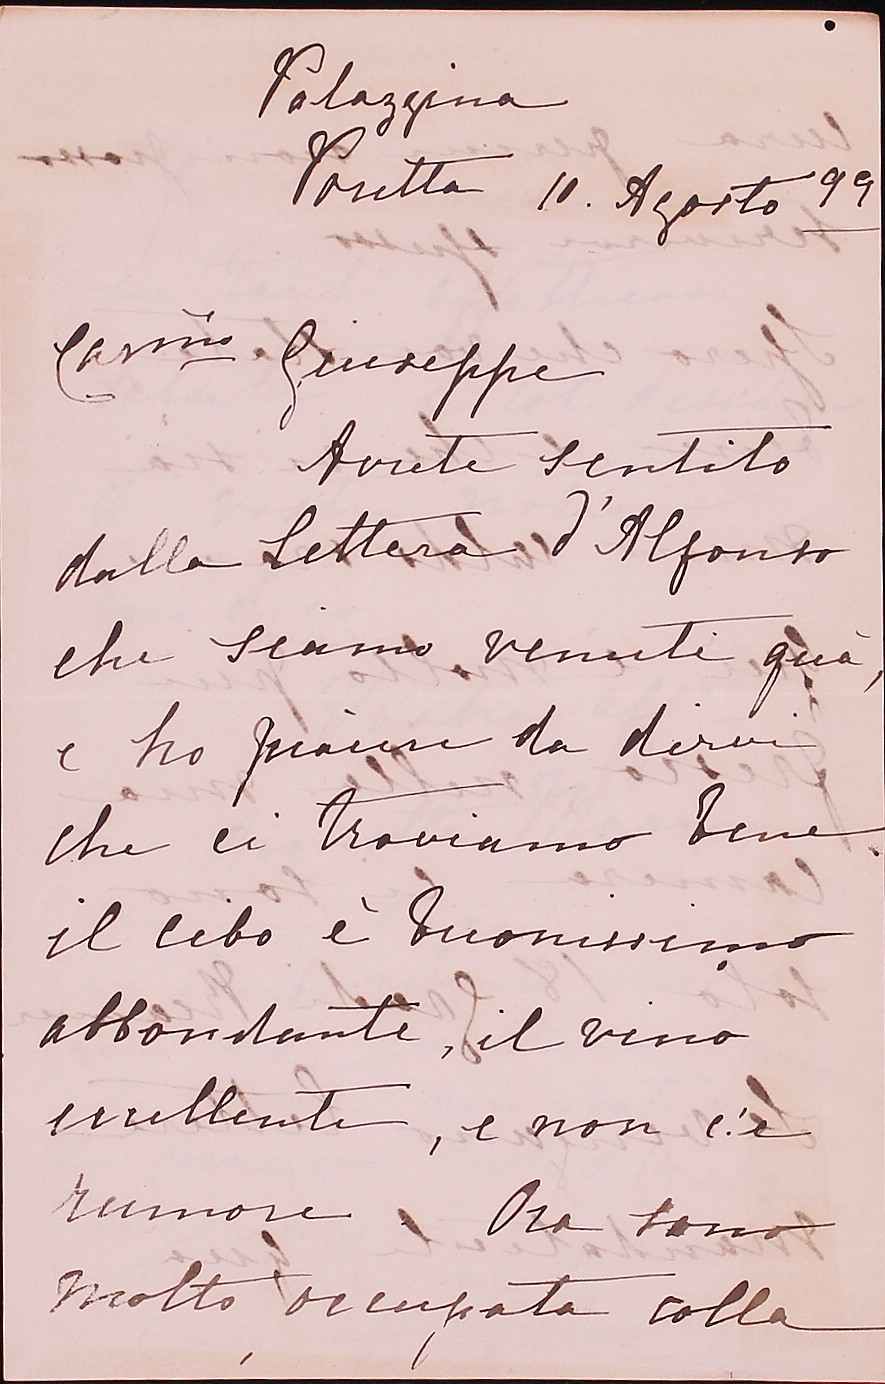 Palazzina
Poretta 10. Agosto 99
Carmo Giuseppe
Avete sentito
dalla Lettera d'Alfonso
che siamo venuti quà,
e ho piacere da dirvi
che ci troviamo bene.
il cibo è buonissimo
abbondante, il vino
eccellente, e non c'è
rumore. Ora sono
molto occupata colla